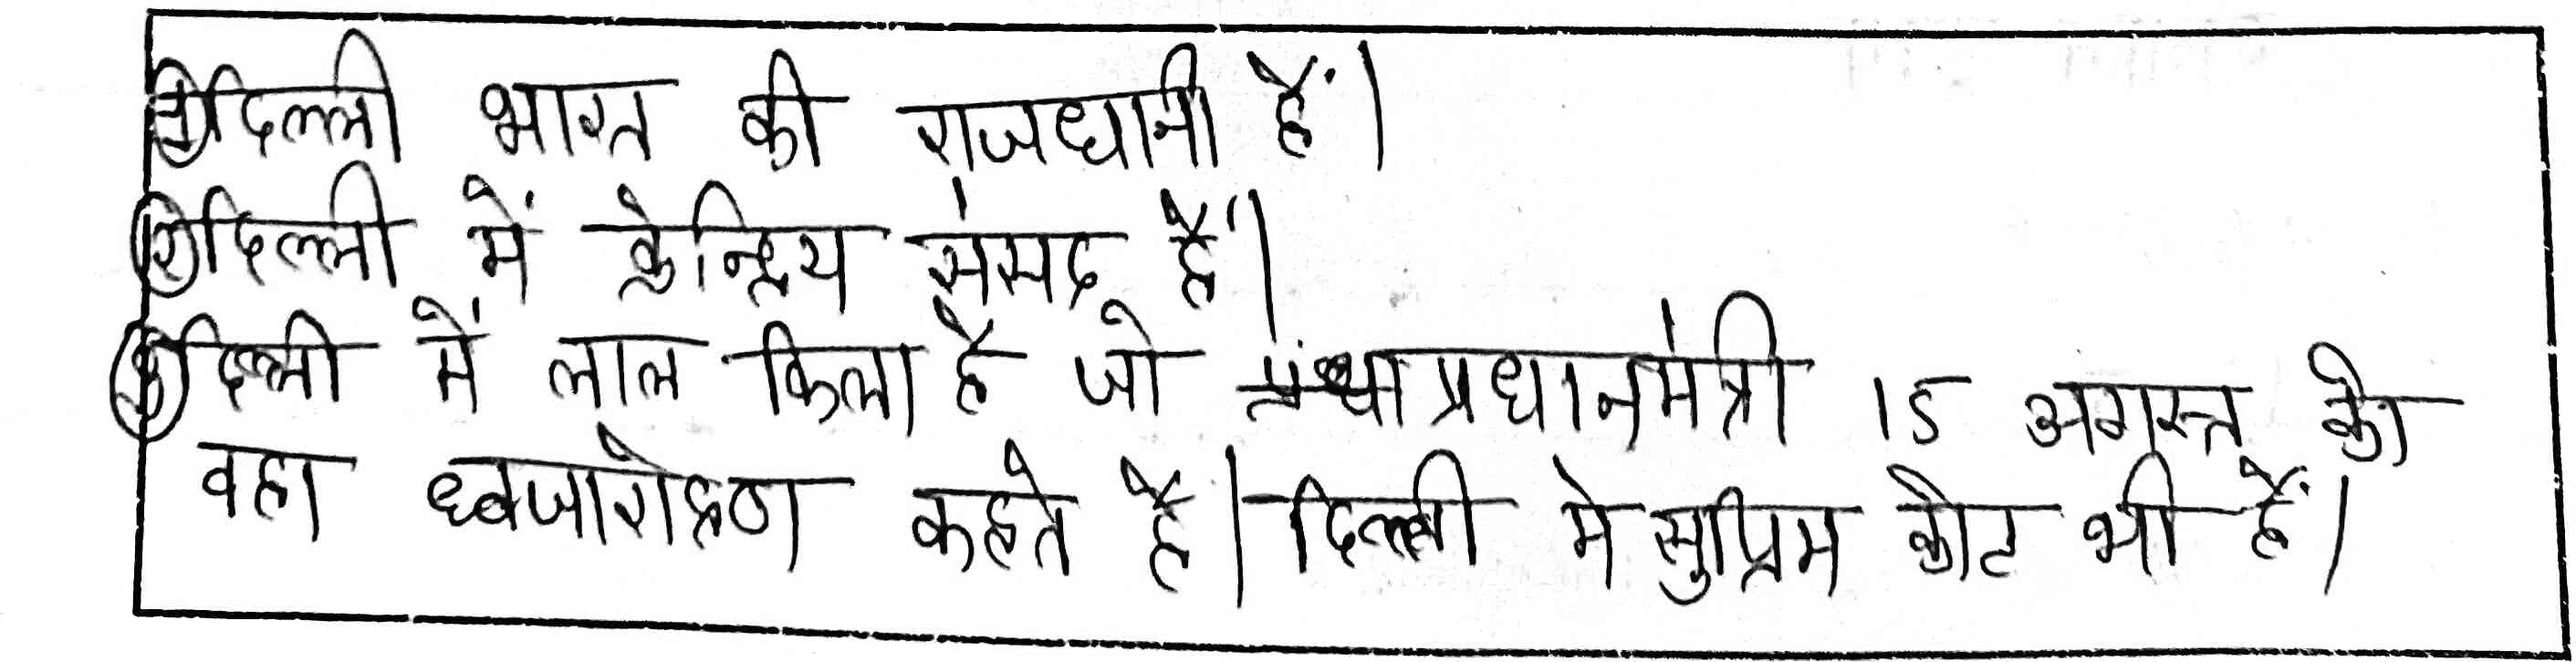 ① दिल्ली भारत की राजधानी हैं।
② दिल्ली में केन्द्रिय संसद हैं।
③ दिल्ली में लाल किला है जो प्रधानमंत्री 15 अगस्त को
वहा ध्वजारोहण कहते है। दिल्ली मे सुप्रिम कोट भी हैं।